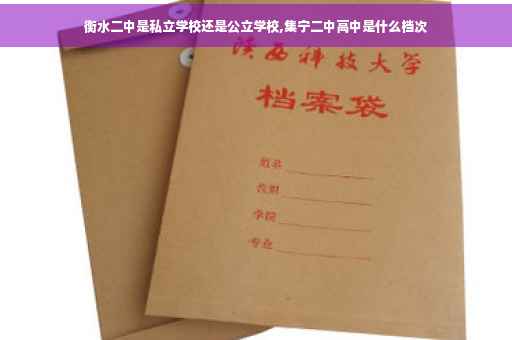 衡水二中是私立学校还是公立学校,集宁二中高中是什么档次
陕西科技大学
档案袋
姓名
学院
专业